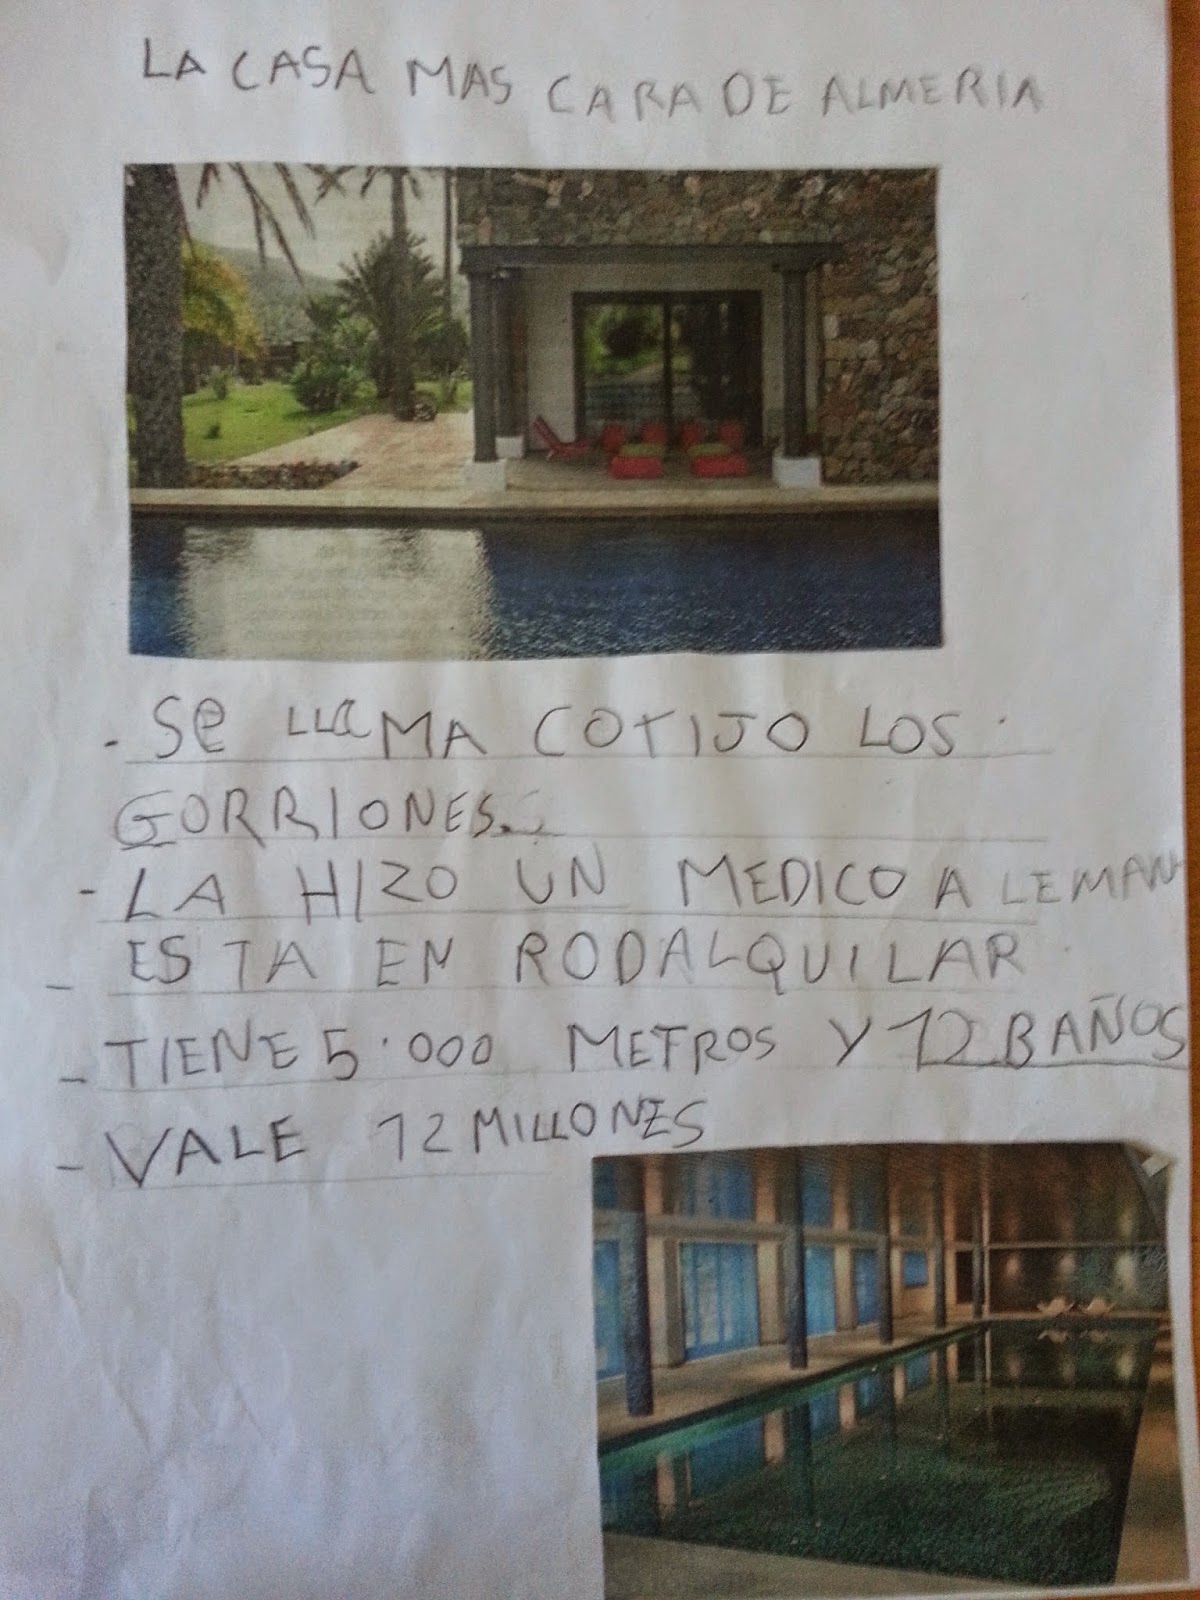 LA CASA MAS CARA DE ALMERIA
- Se LLaMA COTIJO LOS
GORRIONES.
- LA HIZO UN MEDICO ALEMAN
- ESTA EN RODALQUILAR
- TIENE 5.000 METROS Y 12 BAÑOS
- VALE 12 MILLONES